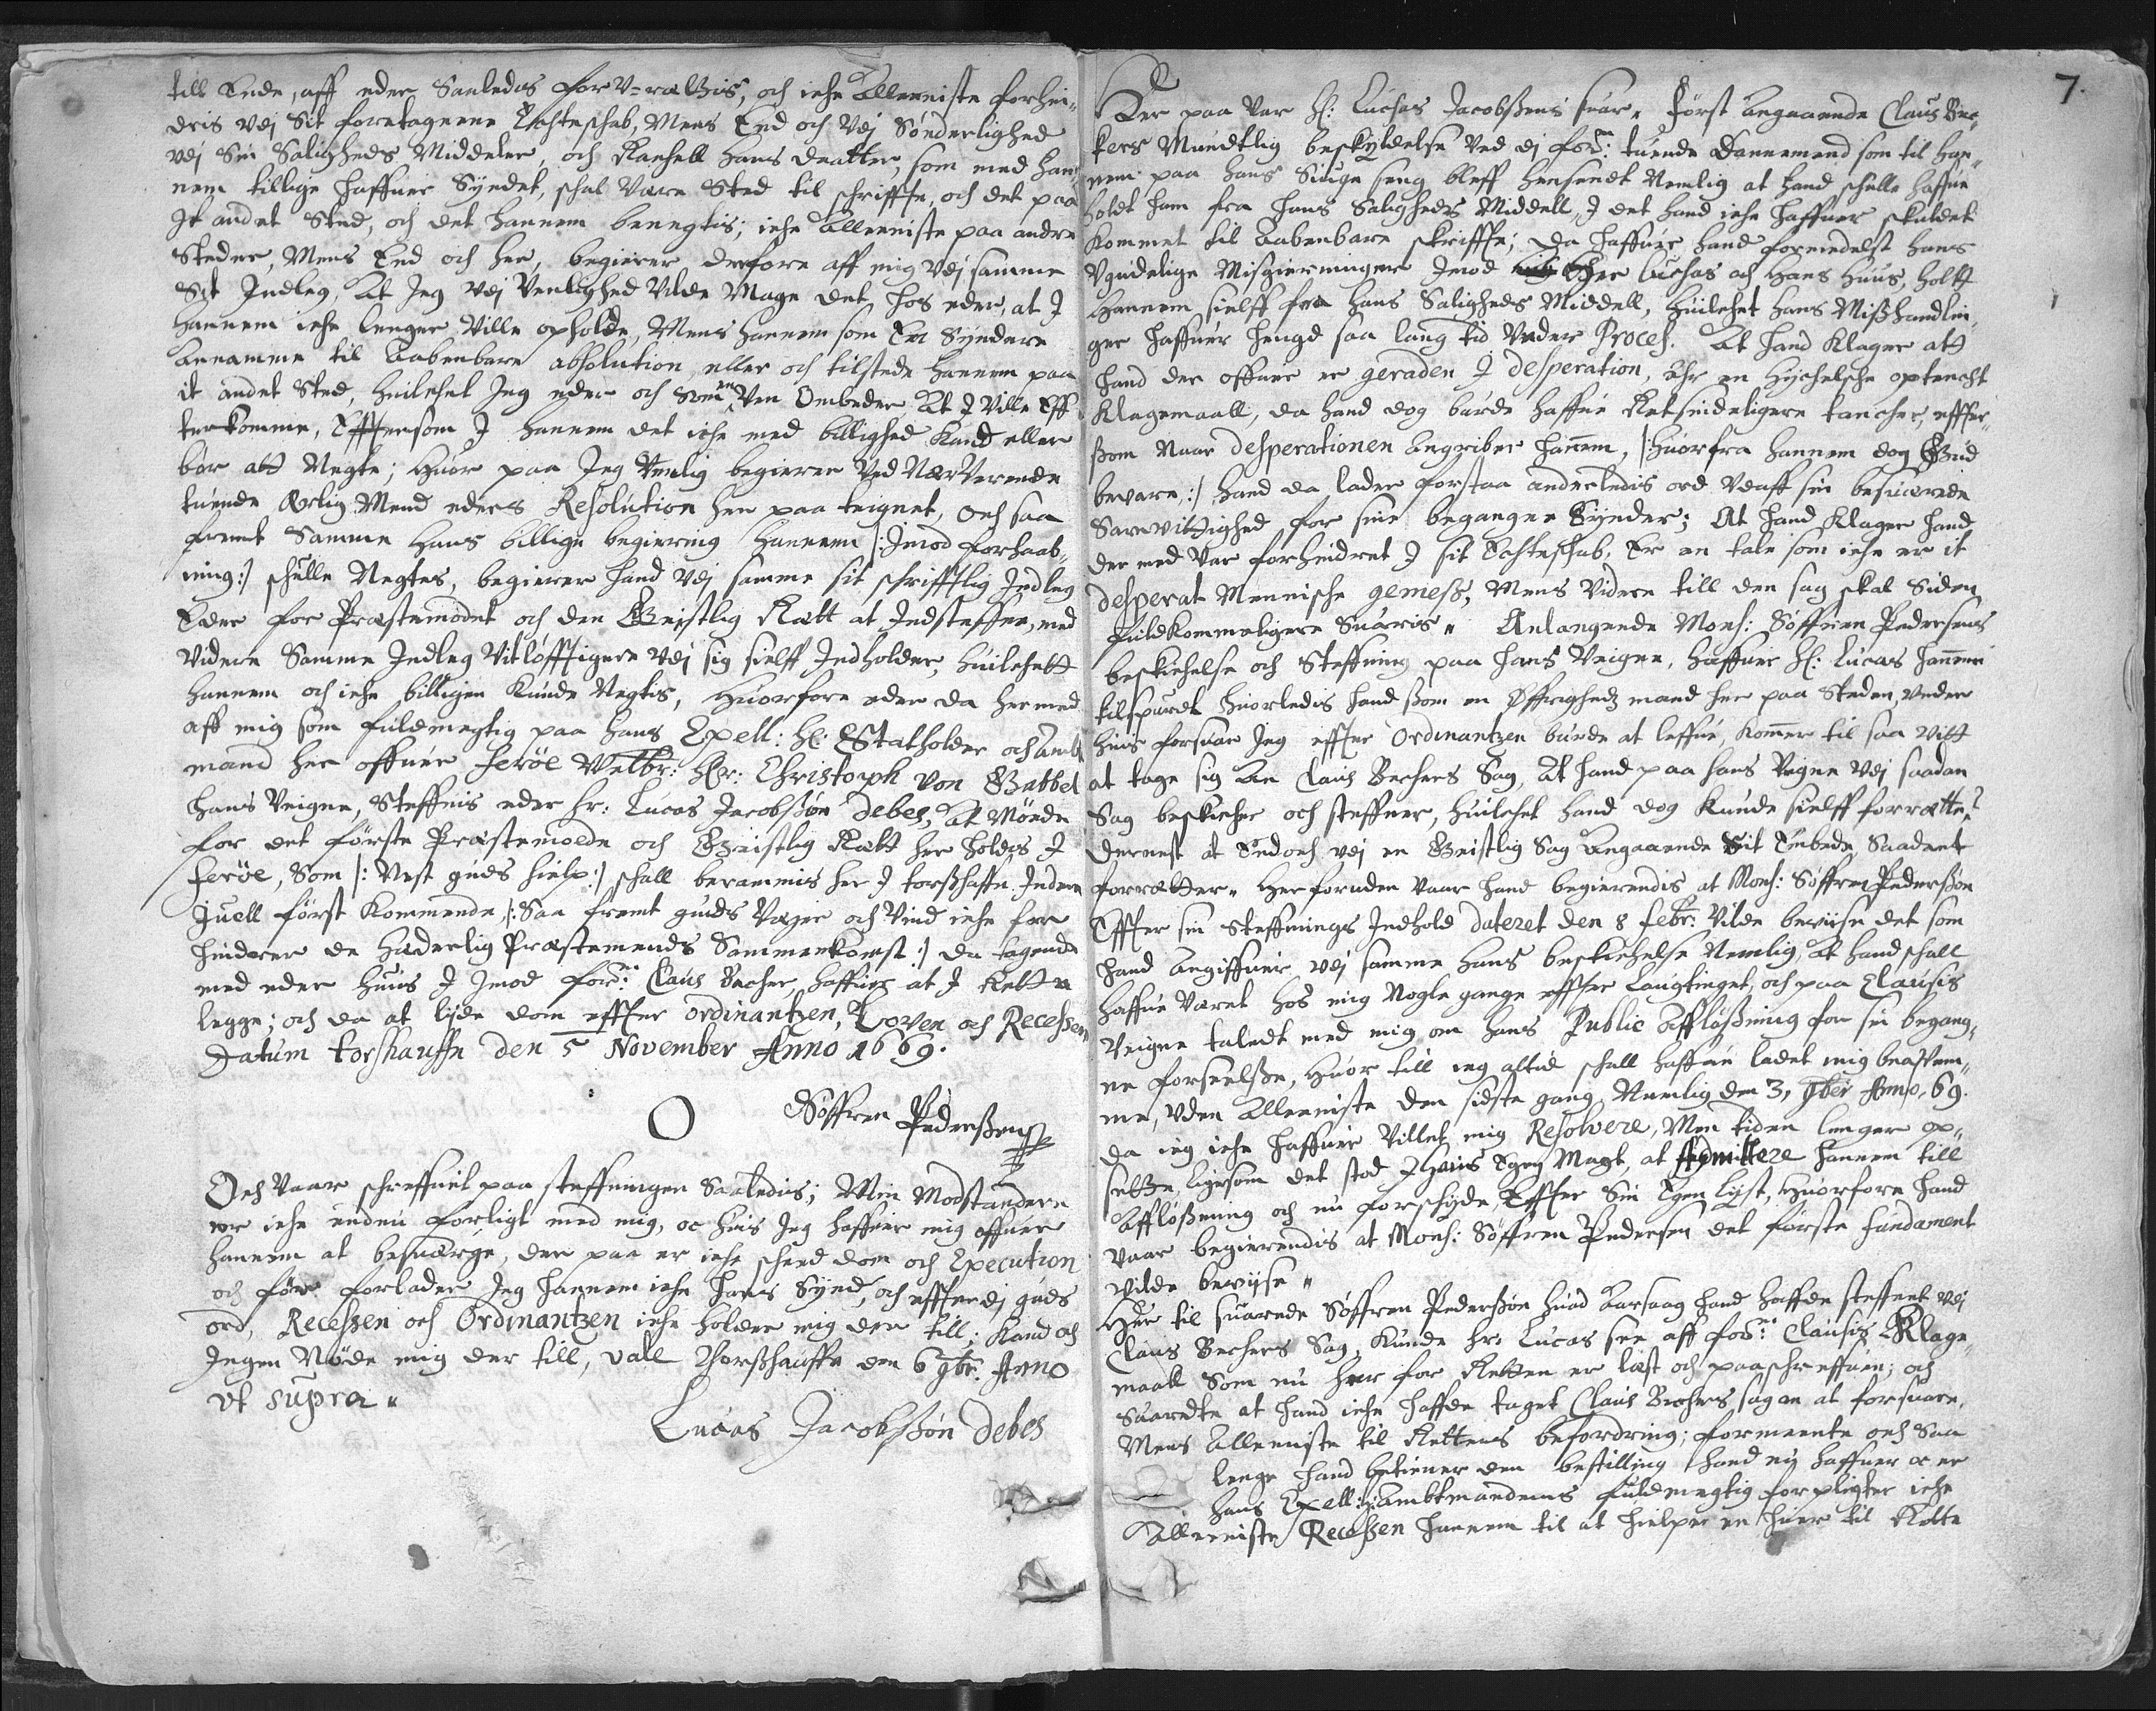 till Ende, aff eder Saaledes for V-rættis, och iche Alleeniste forhin,
dris vdj Sit foretagene Echteschab, Mens End och vdj Sönderlighed
vdj Sin Saligheds Middeler, och Raehell hans deatter, som med han
nem tillige haffuer Syndet, schal være Sted til schriffte, och det paa
It andet Sted, och det hannem benegtis; iche Alleeniste paa andre
Steder, Mens End och her, begierer derfore aff mig vdj samme
Sit Indleg, At Jeg vdj Venlighed Vilde Mage det hos eder, at I
hannem iche lenger Ville opholde, Mens hannem som En Syndere
Annamme til Aabenbare absolution eller och tilstede hannem paa
it andet Sted, huilchet Jeg eder och Som en Ven Ombeder At I Ville Eff
terkomme, Efftersom I hannem det iche med billighed Kand eller
bör att Negte; Huor paa Jeg Venlig begierer Ved Nærverende
tuende Ærlig Mend eders Resolution her paa teignet, och saa
fremt Samme hans billige begiering hannem /:Imod forhaab,
ning:/ schulle Negtes, begierer hand vdj samme sit schrifftlig Indleg
Eder for Præstemödet och den Geistlig Rætt at Indsteffne, med
Videre Samme Indleg Vitlöfftigere vdj sig sielff Indholder, huilchett
hannem och iche billigen Kunde Negtis, Huorfore eder da hermed
aff mig som fuldmegtig paa hans Expell: Hr: Statholder och Ambt
mand her offuer feröe Velbr: Hr: Christoph von Gabbel
hans Veigne, Steffnis eder hr: Lucas Jacobssön Debes, At Möede
for det förste Præstemoede och Geistlig Rætt her holdes I
feröe, Som /: Nest guds hielp:/ schall berammis her I torsshaffn Inden
Juell först Kommende, /:Saa fremt guds Vejer och Vind iche for
hindrer de Hæderlig Præstemends Sammenkomst:/ da tagende
med eder huis I Imod forne: Claus Becher haffuer at I Rette
legge; och da at lijde dom effter ordinantzen, Loven och Recessen
Datum torshauffn den 5 November Anno 1669.
Söffren Pederssen
Och Vaar schreffuit paa steffningen Saaledis; Min Modstandere
er iche endnu forligt med mig, oc huis Jeg haffuer mig offuer
hannem at besuærge, der paa er iche scheed dom och Execution
och för forlader Jeg hannem iche hans Synd, och effterdj guds
ord, Recessen och Ordinantzen iche holder mig der till; Kand och
Ingen Nöde mig der till, vall Thorsshauffn den 6 9br: Anno
vt supra "
Lucas Jacobssön Debes
7.
Der paa Var H: Luchas Jacobssens suar, Först Angaaende Claus Bec,
kers Mundtlig beskyldelse Ved dj forne: tuende Dannemend som til han,
nem paa hans Siuge seng bleff hensendt Nemlig at hand schulle haffue
holdt ham fra hans Saligheds Middell, I det hand iche haffuer skuldet
kommet til Aabenbare skriffte; da haffuer hand formedelst hans
Vgudelige Misgierninger Imod Her Luchas och Hans huus, holtt
Hannem sielff fra hans Saligheds Middell, huilchet hans Misshandlin,
ger haffuer hengd saa lang tid Vnder Proces. At hand Klager att
hand der offuer er geraden I desperation, Ehr en hychelsche optencht
Klagemaall, da hand dog burde haffue Retsindeligere tancher, effter,
ssom Naar desperationen Angriber hannem, /:huorfra hannem dog Gud
bevare:/ hand da lader forstaa anderledis ord Vdaff sin besuerede
Samvittighed for sine begangne Synder; At hand Klager hand
der med Var forhindret I sit Echteschab, Er en tale som iche er it
desperat Menische gemess, Mens Videre till den sag skal Siden
fuldkommeligere Suaris " Anlangende Mons: Söffren Pedersens
beskichelse och Steffning paa hans Veigne, haffuer H: Lucas hannem
tilspurdt huorledis hand ssom en Öffrigheds mand her paa Steden, vnder
huis forsuar Jeg effter Ordinantzen burde at leffue, komer til saa vitt
at tage sig An Claus Bechers Sag, At hand paa hans Vegne Vdj saadan
Sag beskicher och steffner, huilchet hand dog kunde sielff forrætte,
dernest at Endoch vdj en Geistlig Sag Angaaende Sit Embede Saadant
forretter " Her foruden vaar hand begierendis at Mons: Söffren Pederssön
Effter sin Steffnings Indhold dateret den 8 febr: Vilde beviise det som
hand Angiffuer vdj samme hans beskichelse Nemlig, At hand schall
haffue Været hos mig Nogle gange effter Laugtinget, och paa Clausis
Veigne taledt med mig om hans Public Afflössning for sin begang,
ne forseelsse, Huor till ieg altid schall haffue ladet mig beqvem,
me, Vden Alleeniste den sidste gang, Nemlig den 3, 9ber Anno, 69.
da ieg iche haffuer Villet mig Resolvere, Men tiden lenger op,
sette, ligesom det stod I hans Egen Magt, at Admittere hannem till
Afflössning och nu forschyde, Effter Sin Egen lyst, Huorfore hand
vaar begierendis at Mons: Söffren Pedersen det förste fundament
vilde bevijse "
Her til suarede Söffren Pederssön huad Aarsaag hand haffde steffnet vdj
Claus Bechers Sag, Kunde hr: Lucas see aff forne: Clausis Klage,
maall Som nu her for Retten er læst och paaschreffuen; och
Suarede at hand iche haffde taget Claus Bechers sag an at forsuare,
Mens Alleeniste til Rettens befordring; formeente och Saa
lenge hand betiener den bestilling hand nu haffuer oc er
hans Expell: Ambtmandens fuldmegtig forpligter iche
Alleeniste Recessen hannem til at hielpe en huer til Rette